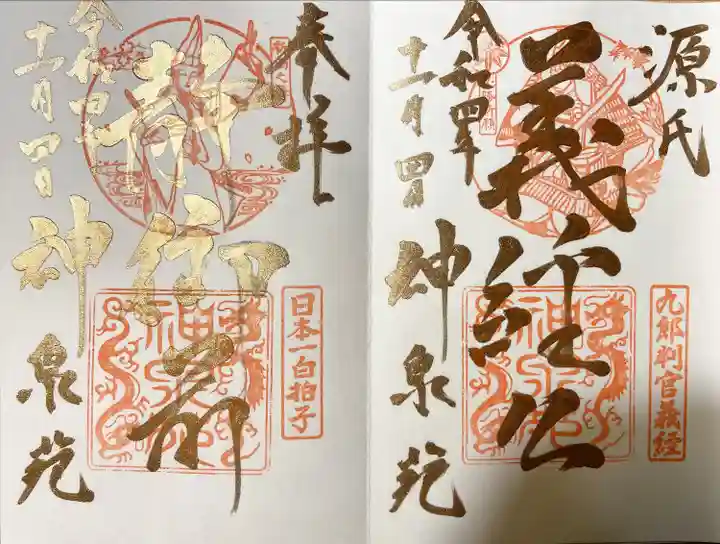 源氏
義経公
九郎判官義経
令和四年
十一月四日
神泉苑
奉拝
静御前
日本一白拍子
令和四年
十一月四日
神泉苑